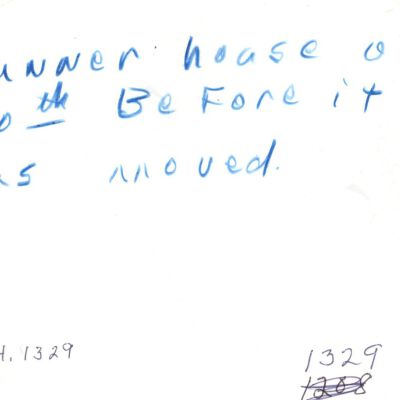 unner house o
oth Before it
as moved.
H. 1329
1329
1208